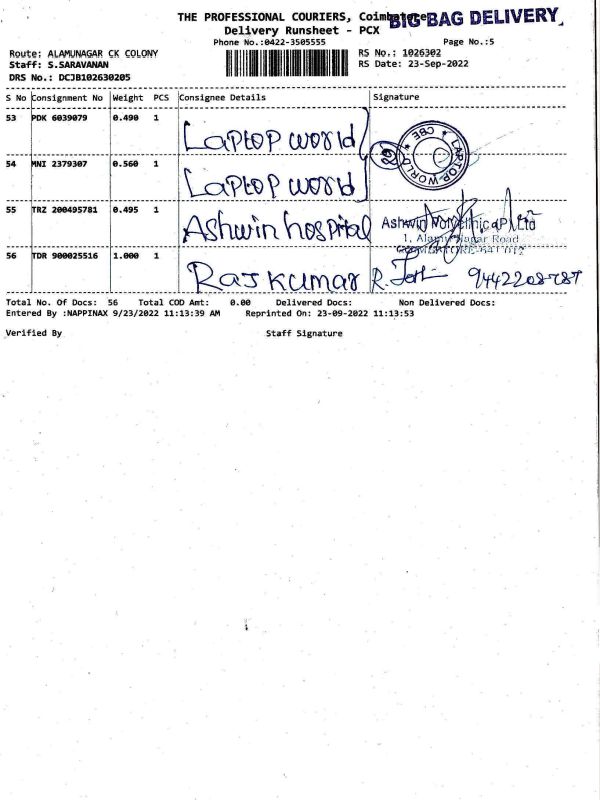 THE PROFESSIONAL COURIERS, Coimbatore
BIG BAG DELIVERY
Delivery Runsheet - PCX
Phone No.:0422-3505555 Page No.:5
Route: ALAMUNAGAR CK COLONY RS No.: 1026302
Staff: S.SARAVANAN RS Date: 23-Sep-2022
DRS No.: DCJB102630205
S No Consignment No Weight PCS Consignee Details Signature
53 PDK 6039079 0.490 1 Laptop world
LAPTOP WORLD * CBE *
54 MNI 2379307 0.560 1 Laptop world
55 TRZ 200495781 0.495 1 Ashwin hospital Ashwin
1, Alamu Nagar Road
56 TDR 900025516 1.000 1 Rajkumar R.
Total No. Of Docs: 56 Total COD Amt: 0.00 Delivered Docs: Non Delivered Docs:
Entered By :NAPPINAX 9/23/2022 11:13:39 AM Reprinted On: 23-09-2022 11:13:53
Verified By Staff Signature